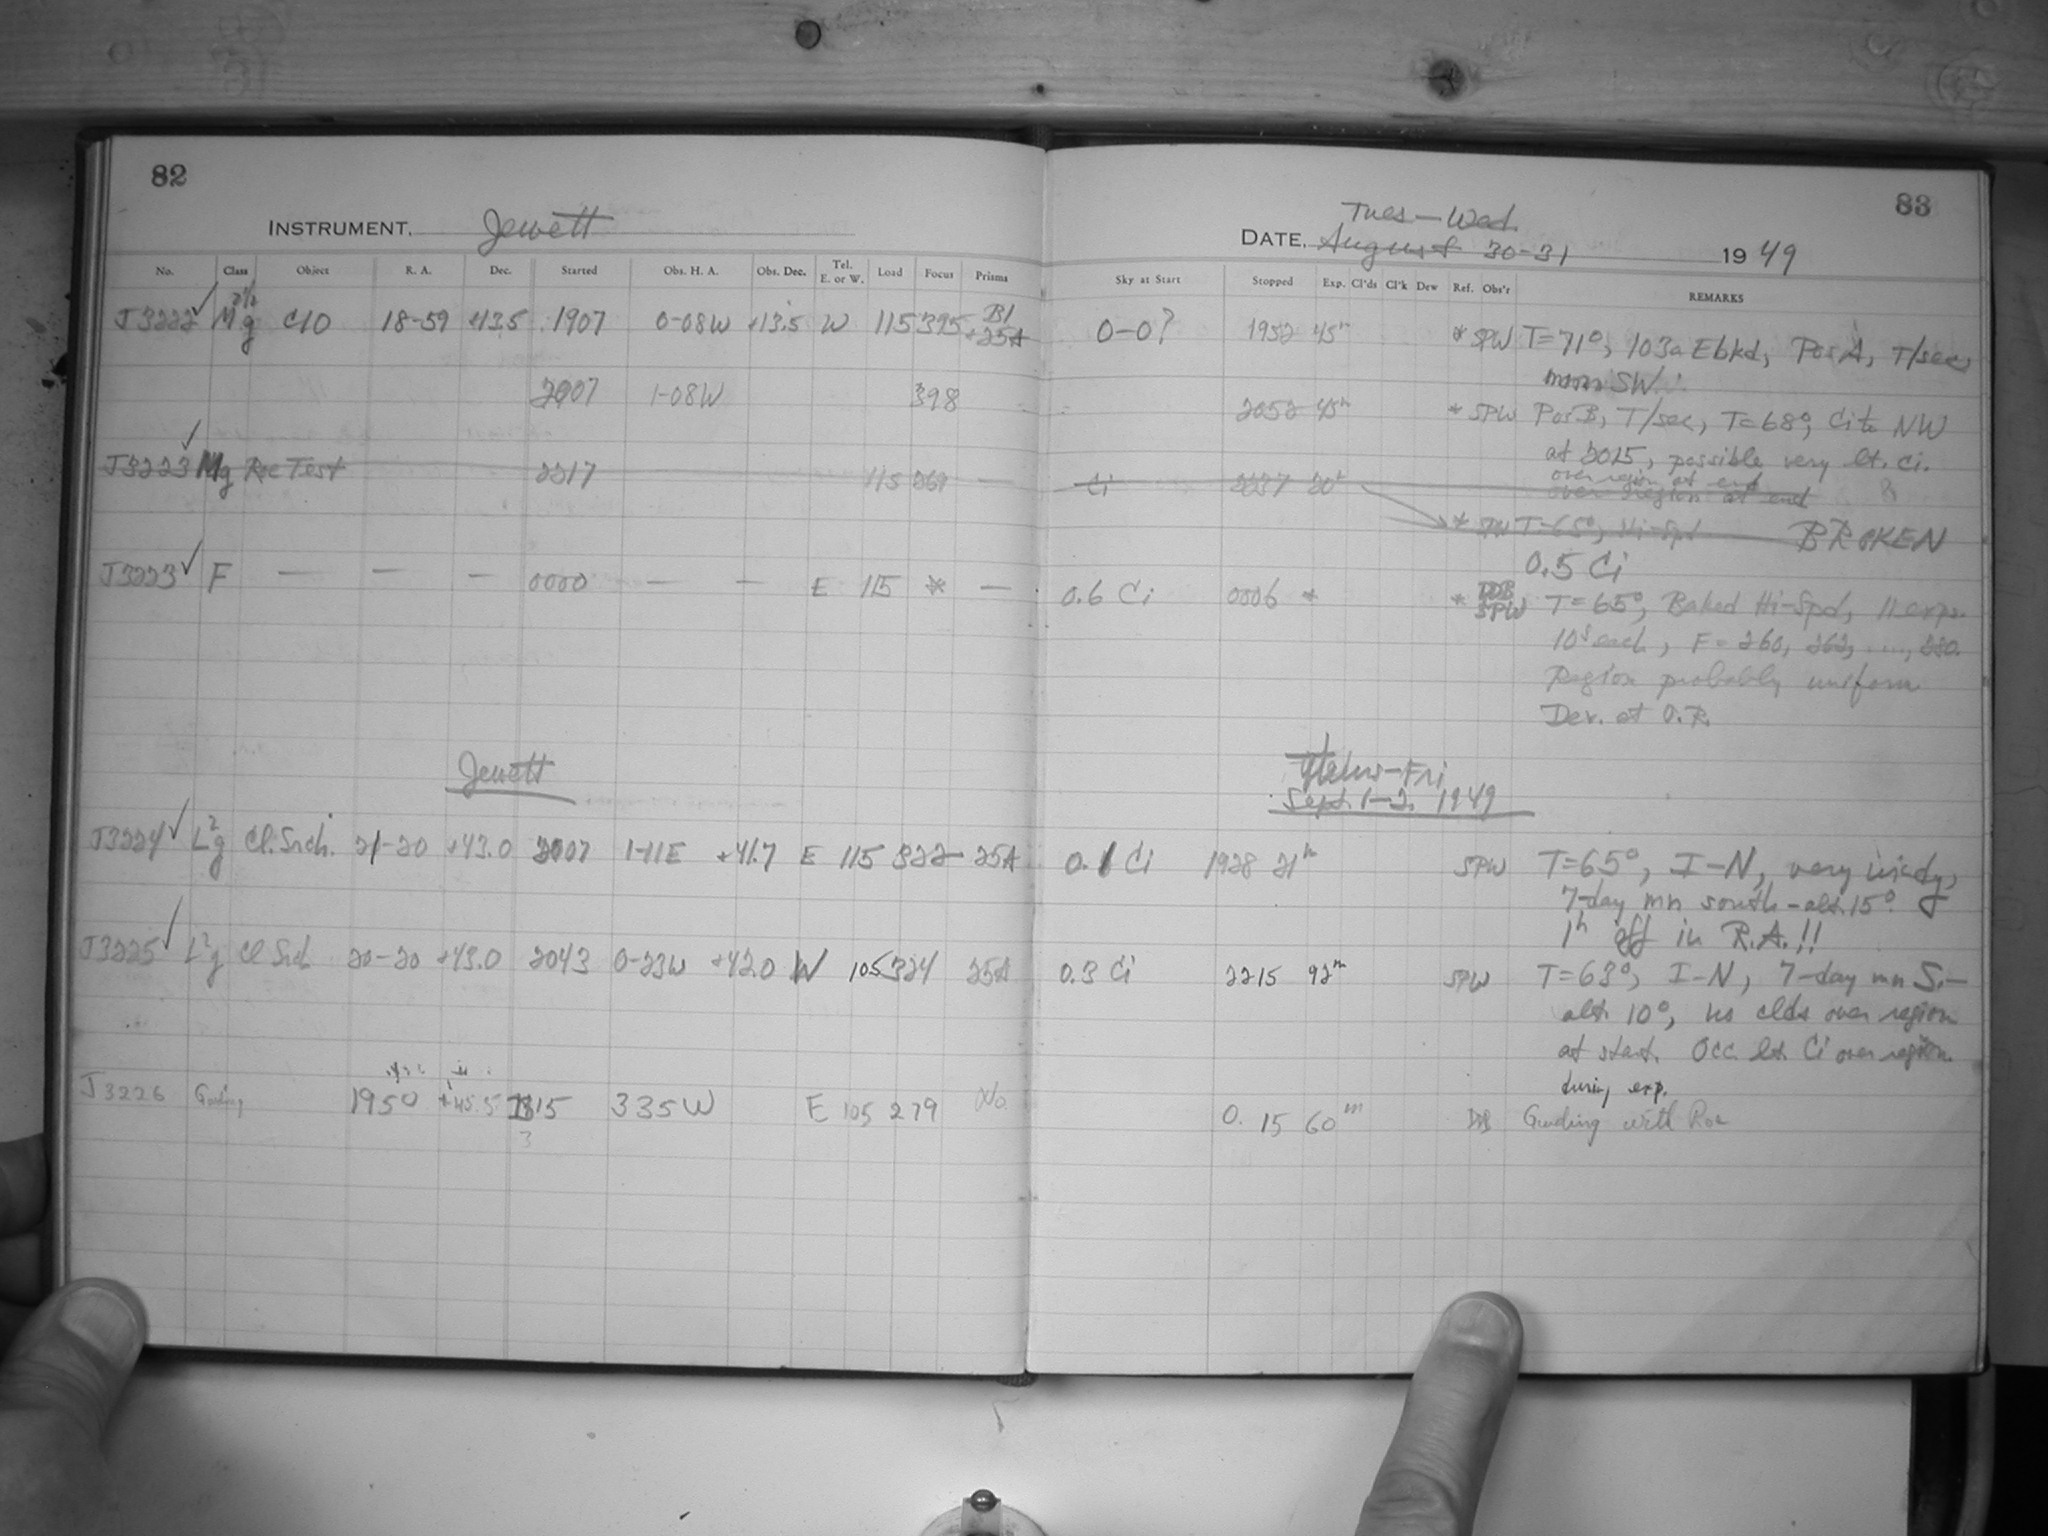 82
INSTRUMENT. Jewett
No. Class Object R. A. Dec. Started Obs. H. A. Obs. Dec. Tel. E. or W. Load Focus Prisms
J3222 ✓ Mg C10 18-59 +13.5 1907 0-08W +13.5 W 115 395 B1 +25A
2007 1-08W 398
J3223 ✓ Mg Roe Test 2217 115 269 —
J3223 ✓ F — — — 0000 — — E 115 * —
Jewett
J3224 ✓ L²g Cl. Srch. 21-20 +43.0 2007 1-11E +41.7 E 115 322 25A
J3225 ✓ L²g Cl Srch 20-20 +43.0 2043 0-23W +42.0 W 105 324 25A
J3226 Guiding 1950 +45.5 2315 335W E 105 279 No
3
83
Tues-Wed
DATE. August 30-31 1949
Sky at Start Stopped Exp. Cl'ds Cl'k Dew Ref. Obs'r REMARKS
0-0? 1952 45m * SPW T=71°, 103a Ebkd, Pos A, T/sec,
moon SW.
2052 45m * SPW Pos B, T/sec, T=68°, Ci to NW
at 2015, possible very lt. Ci.
over region at end
over region at end
Ci 2237 20
* SPW T=65°, Hi-Spd BROKEN
0.5 Ci
0.6 Ci 0006 * * DDB SPW T=65°, Baked Hi-Spd, 11 exps.
10s each, F=260, 262, ...., 280.
Region probably uniform
Dev. at O.R.
Thur-Fri
Sept. 1-2, 1949
0.1 Ci 1928 21m SPW T=65°, I-N, very windy,
7-day mn south-alt. 15°.
1h off in R.A.!!
0.3 Ci 2215 92m SPW T=63°, I-N, 7-day mn S.—
alt. 10°, no clds over region
at start. Occ. lt. Ci over region
during exp.
0.15 60m DB Guiding with Roe